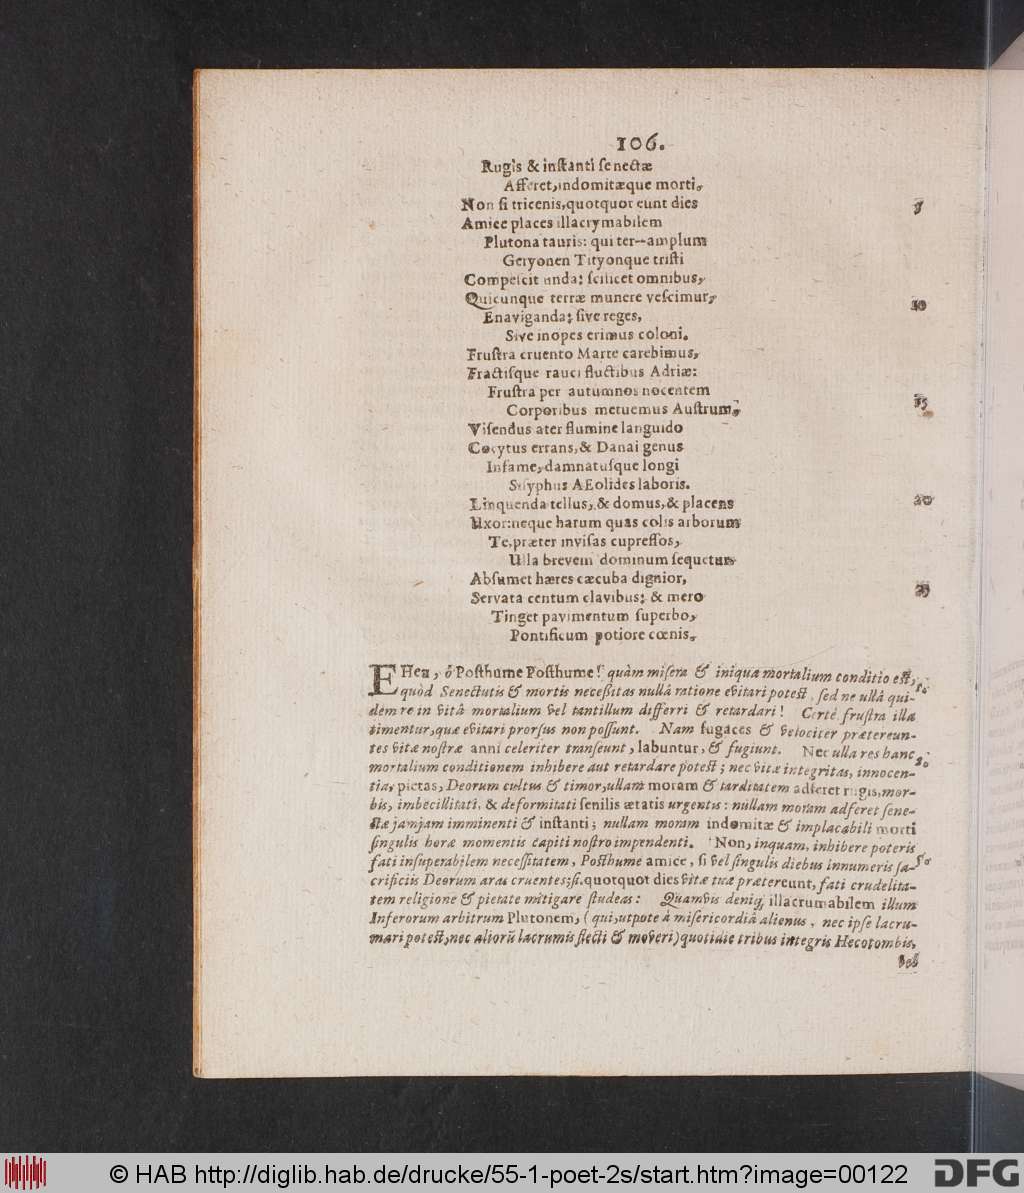 106.
Rugis & instanti senectæ
Afferet, indomitæque morti.
Non si tricenis, quotquot eunt dies
Amice places illacrymabilem
Plutona tauris: qui ter--amplum
Geryonen Tityonque tristi
Compescit unda: scilicet omnibus,
Quicunque terræ munere vescimur, 10
Enaviganda; sive reges,
Sive inopes erimus coloni.
Frustra cruento Marte carebimus,
Fractisque rauci fluctibus Adriæ:
Frustra per autumnos nocentem
Corporibus metuemus Austrum, 15
Visendus ater flumine languido
Cocytus errans, & Danai genus
Infame, damnatusque longi
Sisyphus AEolides laboris.
Linquenda tellus, & domus, & placens 20
Uxor: neque harum quas colis arborum
Te, præter invisas cupressos,
Ulla brevem dominum sequetur
Absumet hæres cæcuba dignior,
Servata centum clavibus: & mero 25
Tinget pavimentum superbo,
Pontificum potiore cœnis.
EHeu, ô Posthume Posthume! quàm misera & iniqua mortalium conditio est,
quòd Senectutis & mortis necessitas nullâ ratione evitari potest, sed ne ullâ qui-
dem re in vitâ mortalium vel tantillum differri & retardari! Certè frustra illa
timentur, quæ evitari prorsus non possunt. Nam fugaces & velociter prætereun-
tes vitæ nostræ anni celeriter transeunt, labuntur, & fugiunt. Nec ulla res hanc
mortalium conditionem inhibere aut retardare potest; nec vitæ integritas, innocen-
tia, pietas, Deorum cultus & timor, ullam moram & tarditatem adferet rugis, mor-
bis, imbecillitati, & deformitati senilis ætatis urgentis: nullam moram adferet sene-
ctæ jamjam imminenti & instanti; nullam moram indomitæ & implacabili morti
singulis horæ momentis capiti nostro impendenti. Non, inquam, inhibere poteris
fati insuperabilem necessitatem, Posthume amice, si vel singulis diebus innumeris sa-
crificiis Deorum aras cruentes; si, quotquot dies vitæ tuæ prætereunt, fati crudelita-
tem religione & pietate mitigare studeas: Quamvis deniq; illacrumabilem illum
Inferorum arbitrum Plutonem, (qui, utpote à misericordiâ alienus, nec ipse lacru-
mari potest, nec aliorũ lacrumis flecti & moveri) quotidie tribus integris Hecotombis,
© HAB http://diglib.hab.de/drucke/55-1-poet-2s/start.htm?image=00122
DFG